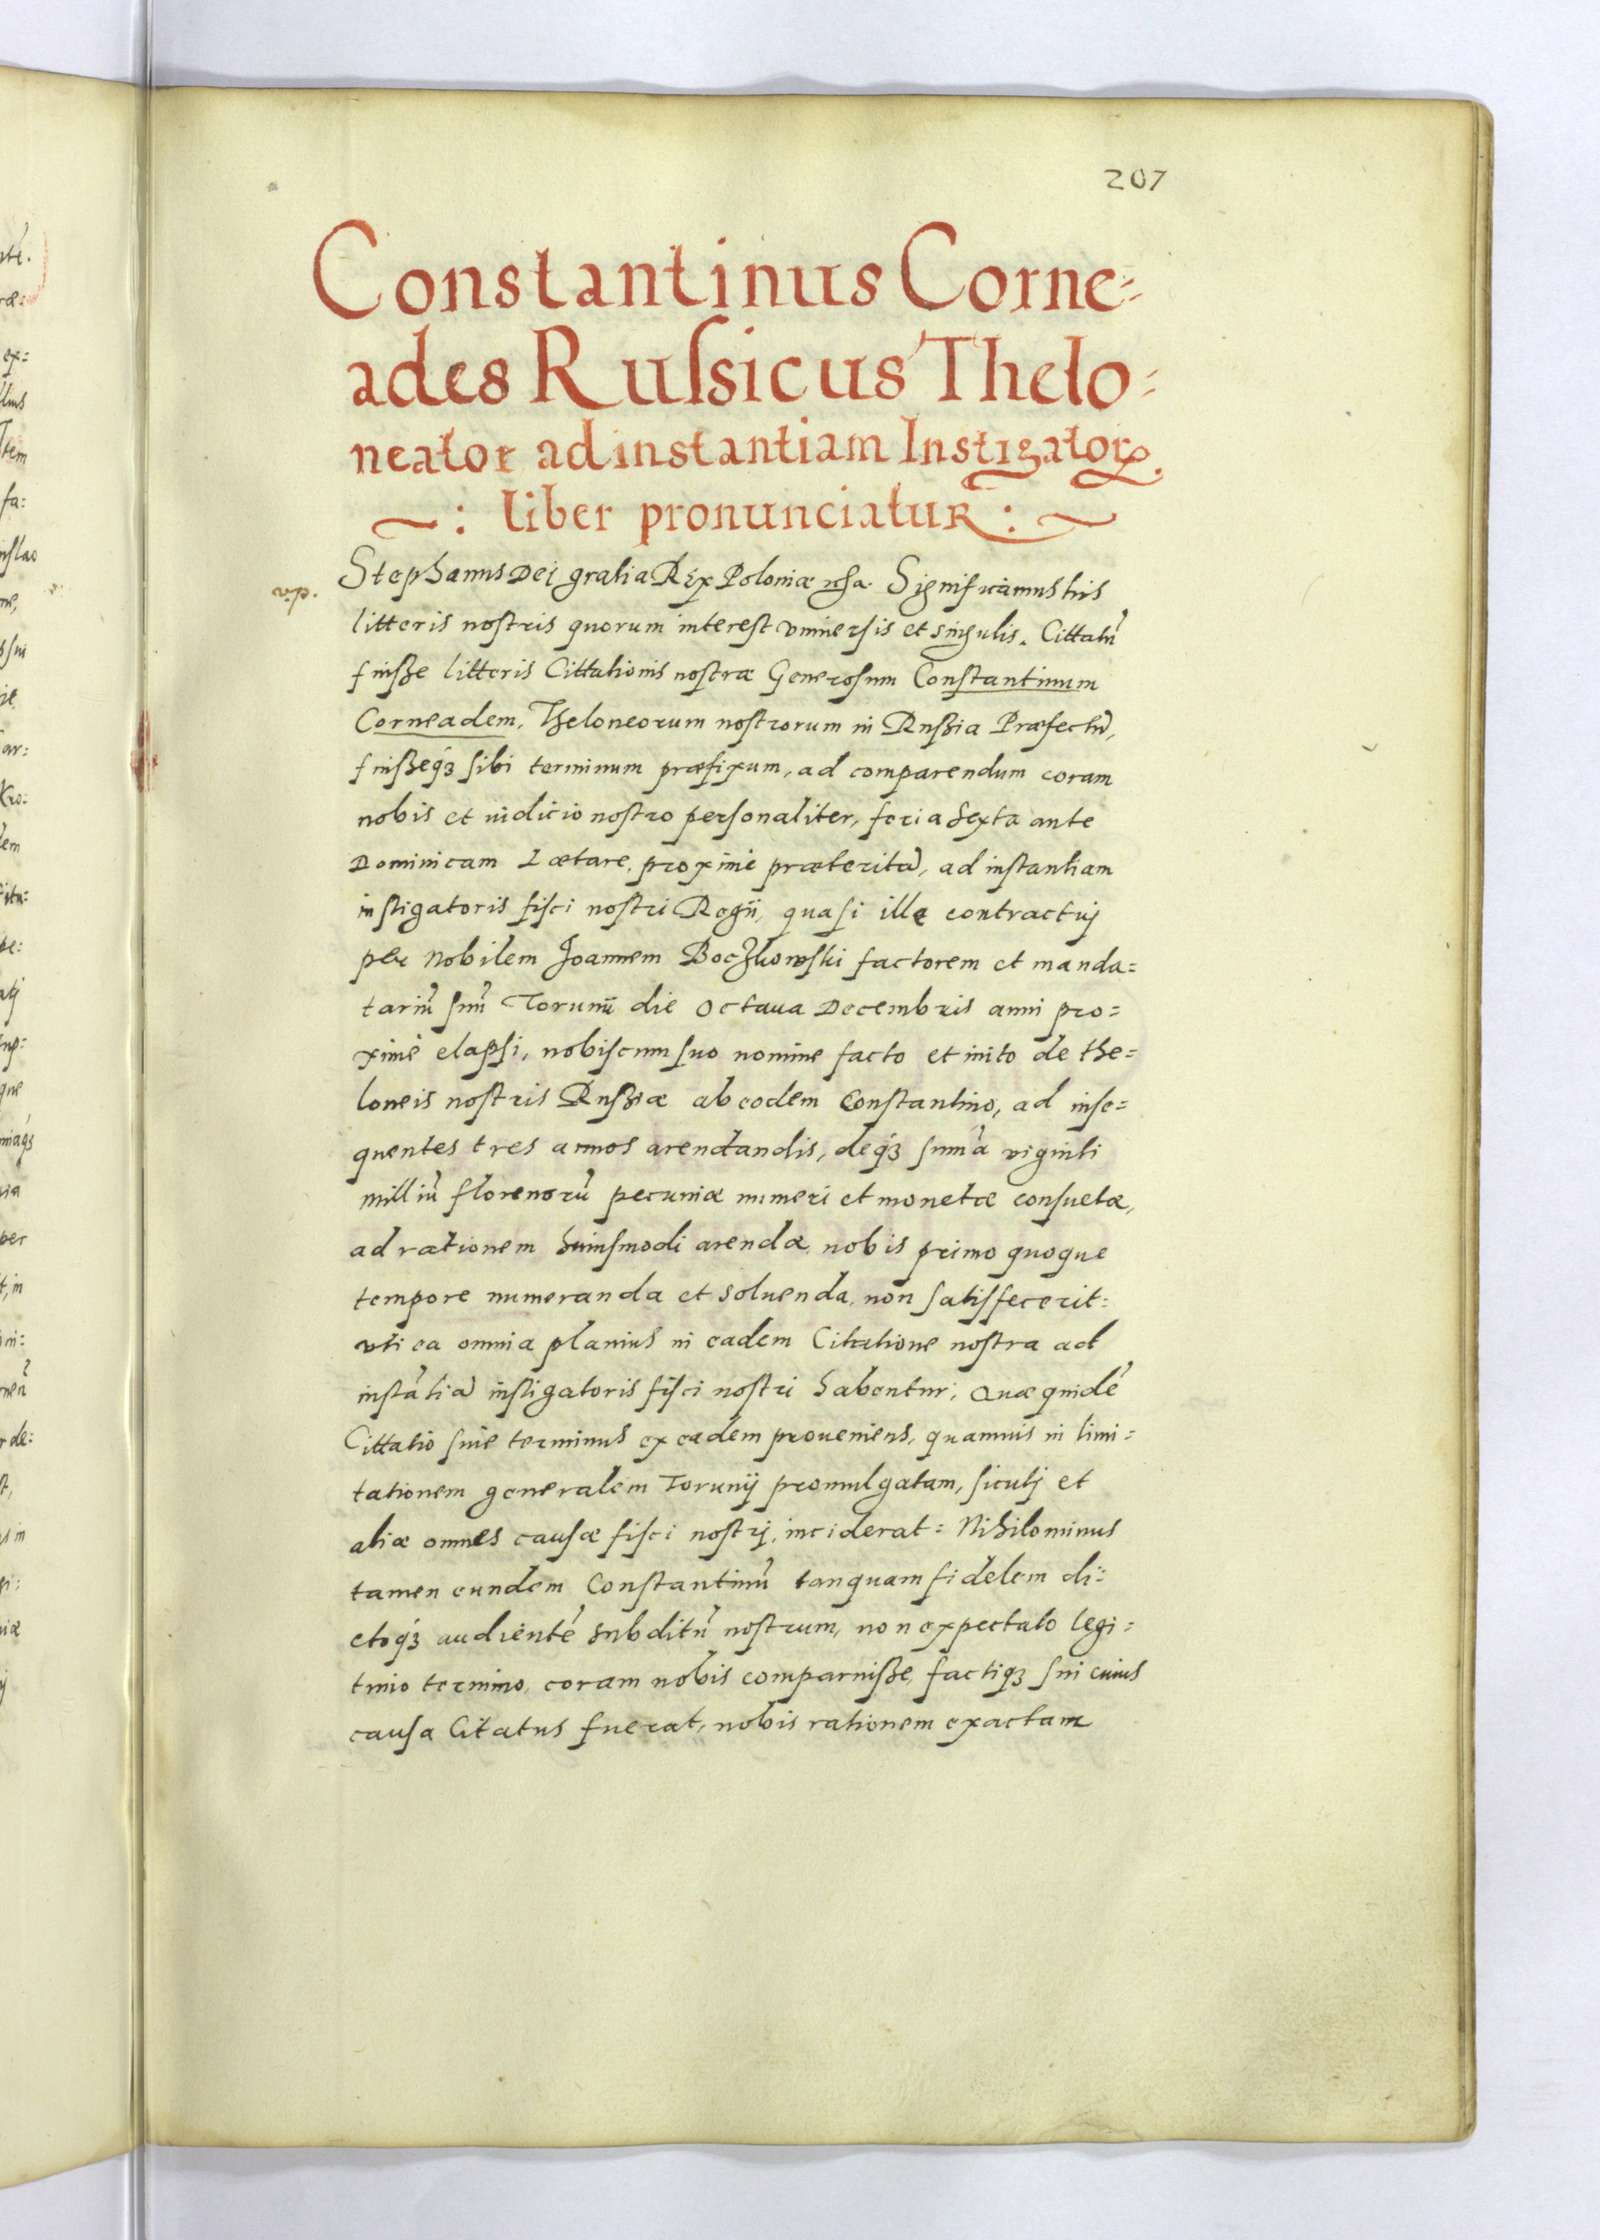 207
Constantinus Corne=
ades Rulsicus Thelo=
neator ad instantiam Instigatorꝝ.
~: liber pronunciatur :~
Stephanus Dei gratia Rex Poloniæ Significamus his
litteris nostris quorum interest vniuersis et singulis. Cittatũ
fuisse litteris Cittationis nostræ Generosum Constantinum
Corneadem, Theloneorum nostrorum in Russia Præfectũ,
fuisseqꝫ sibi terminum præfixum, ad comparendum coram
nobis et iudicio nostro personaliter, feria sexta ante
Dominicam Lætare, proximè præteritã, ad instantiam
instigatoris fisci nostri Regii, quasi ille contractuj
per Nobilem Joannem Boczkowski factorem et manda=
tariũ suũ Torunii die octaua Decembris anni pro=
ximè elapsi, nobiscum suo nomine facto et inito de the=
loneis nostris Russiæ ab eodem Constantino, ad inse=
quentes tres annos arendandis, deqꝫ sum̃a viginti
milliũ florenorũ pecuniæ numeri et monetæ consuetæ,
ad rationem huiusmodi arendæ, nobis primo quoque
tempore numeranda et soluenda, non satisfecerit:
vti ea omnia planius in eadem Citatione nostra ad
instãtiã instigatoris fisci nostri habentur, Quæ quidẽ
Cittatio siue terminus ex eadem proueniens, quamuis in limi=
tationem generalem Torunij promulgatam, sicutj et
aliæ omnes causæ fisci nostrj, inciderat: Nihilominus
tamen eundem Constantinũ tanquam fidelem di=
ctoqꝫ audientẽ subditũ nostrum, non expectato legi=
timo termino, coram nobis comparuisse, factiqꝫ sui cuius
causa Citatus fuerat, nobis rationem exactam